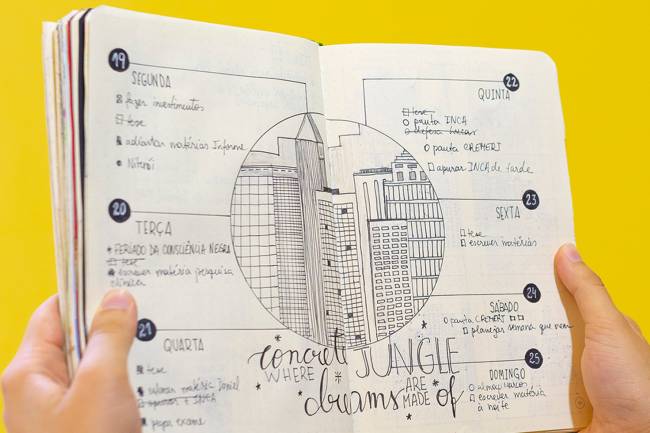 19
SEGUNDA
fazer investimentos
tese
adiantar matérias Informe
Niterói
20
TERÇA
* FERIADO DA CONSCIÊNCIA NEGRA
tese
escrever matéria pesquisa
21
QUARTA
tese
matéria Daniel
apurar + INCA
exame
22
QUINTA
tese
pauta INCA
defesa Lucas
pauta CREMERJ
apurar INCA de tarde
23
SEXTA
tese
escrever matérias
24
SÁBADO
pauta CREMERJ
planejar semana que vem
25
DOMINGO
almoço
escrever matéria
à noite
concrete JUNGLE
WHERE
dreams ARE
MADE of